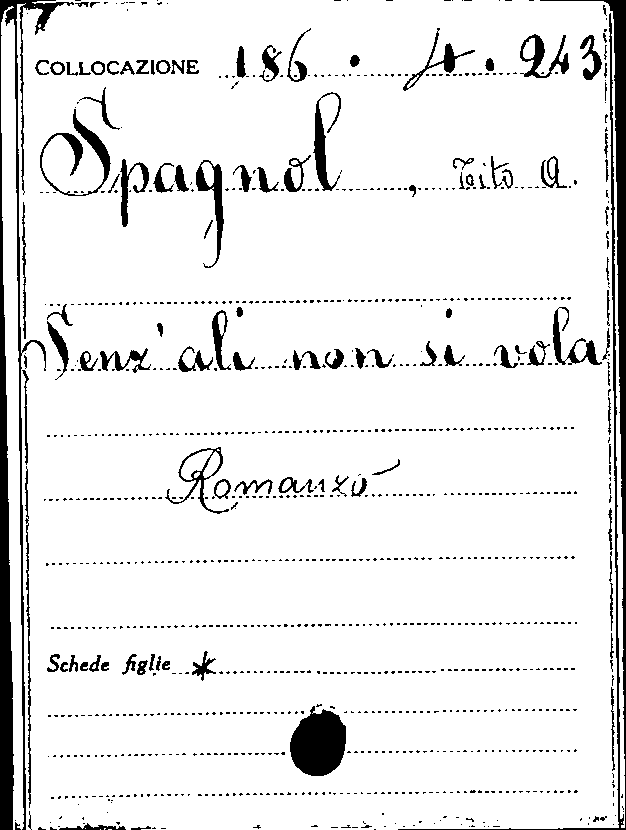 COLLOCAZIONE 186 . 4 . 243
Spagnol, Tito A.
Senz'ali non si vola
Romanzo
Schede figlie *